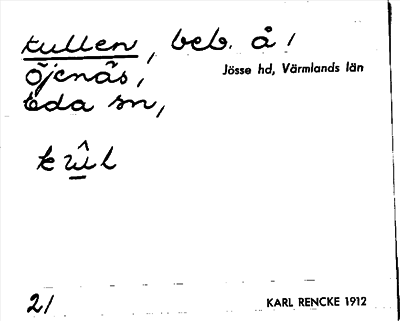 kullen, beb. å /
Öjenäs,
Jösse hd, Värmlands län
Eda sn,
21
KARL RENCKE 1912